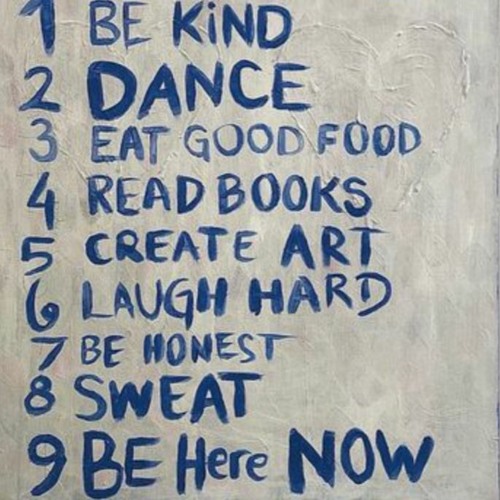 1 BE KiND
2 DANCE
3 EAT GOOD FOOD
4 READ BOOKS
5 CREATE ART
6 LAUGH HARD
7 BE HONEST
8 SWEAT
9 BE Here NOW